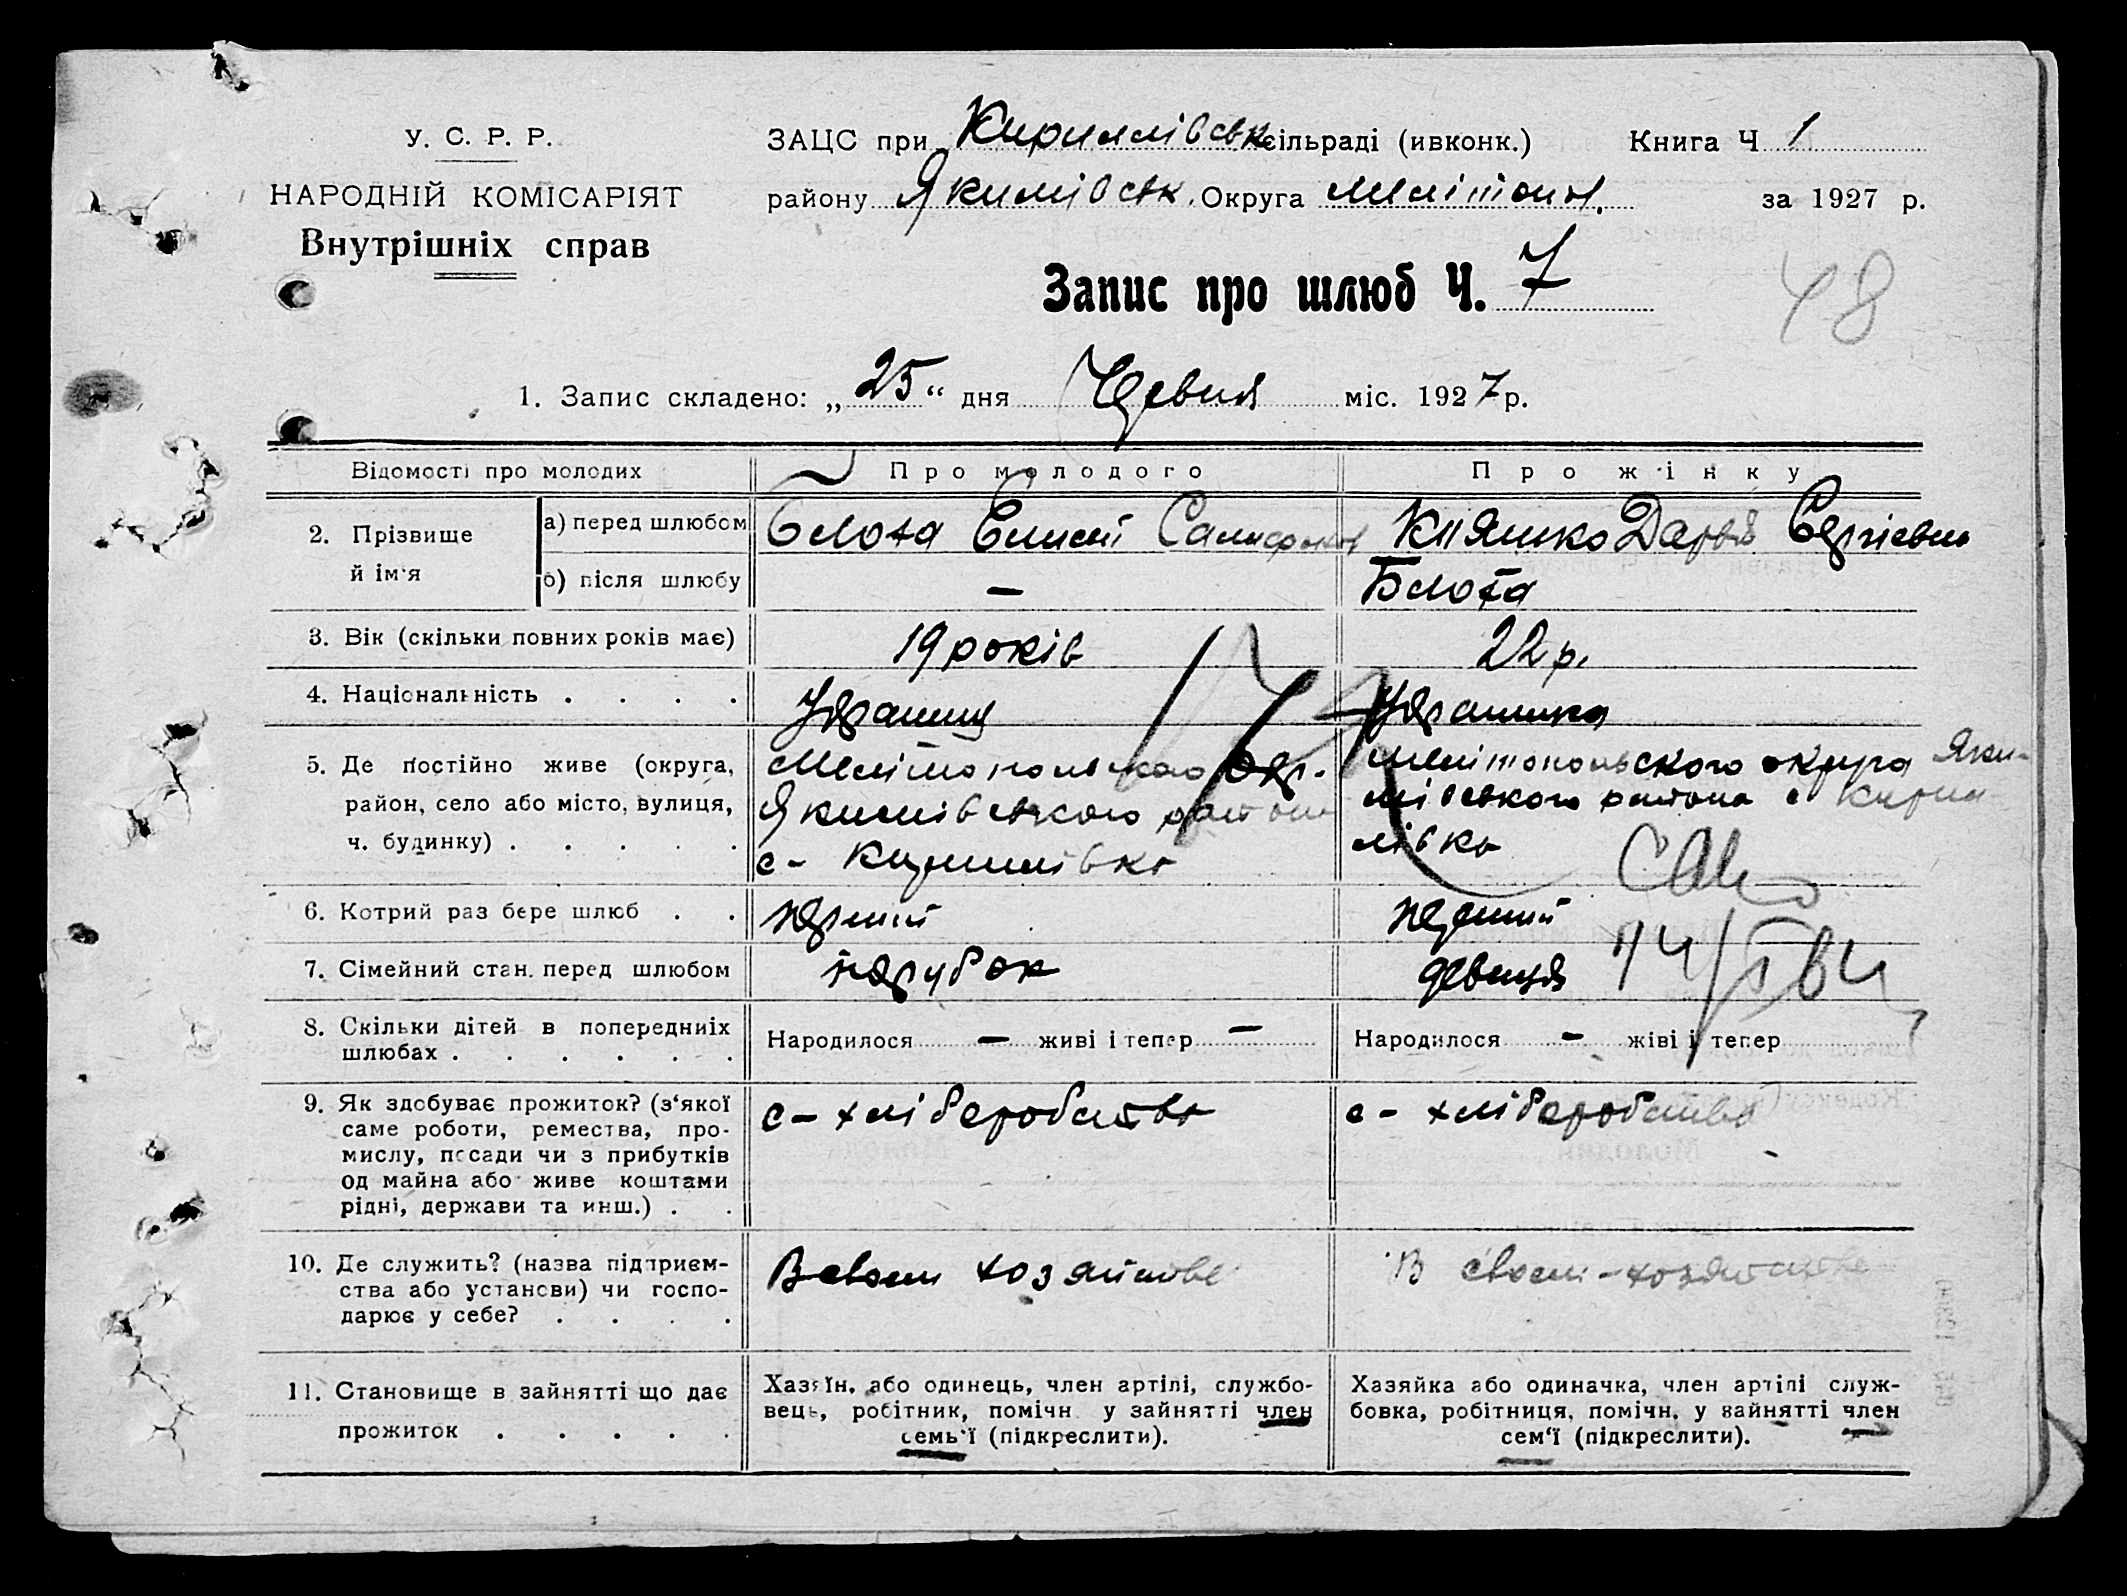 У. С. Р. Р.
НАРОДНІЙ КОМІСАРІЯТ
Внутрішніх справ
ЗАЦС при Кириллівськ сільраді (ивконк.) Книга Ч 1
району Якимівськ. Округа Мелітоп. за 1927 р.
Запис про шлюб Ч. 7
48
1. Запис складено: „25“ дня міс. 1927 р.
Відомості про молодих
Про молодого
Про жінку
2. Прізвище й ім'я
а) перед шлюбом
Блоха Єлисей
Кияшко Дарья Сергієвна
б) після шлюбу
—
Блоха
3. Вік (скільки повних років має)
19 років
22 р.
4. Національність . . . .
Українец
Українка
5. Де постійно живе (округа,
район, село або місто, вулиця,
ч. будинку) . . . . .
Мелітопольского окр.
Якимівського район
с- Кирилівка
Мелітопольского округа Яки-
мівського района с Кирил
лівка
6. Котрий раз бере шлюб . .
первий
первий
7. Сімейний стан. перед шлюбом
парубок
девиця
8. Скільки дітей в попередниіх
шлюбах . . . . . .
Народилося — живі і тепер —
Народилося — жіві і тепер
9. Як здобуває прожиток? (з'якої
саме роботи, ремества, про-
мислу, посади чи з прибутків
од майна або живе коштами
рідні, держави та инш.) . .
с-хліборобство
с- хліборобство
10. Де служить? (назва підприєм-
ства або установи) чи госпо-
дарює у себе? . . . .
В своем хозяйстве
В своем-хозяйстве
11. Становище в зайнятті що дає
прожиток . . . . .
Хазяїн, або одинець, член артілі, службо-
вець, робітник, помічн у зайнятті член
семь'ї (підкреслити).
Хазяйка або одиначка, член артілі служ-
бовка, робітниця, помічн. у зайнятті член
сем'ї (підкреслити).